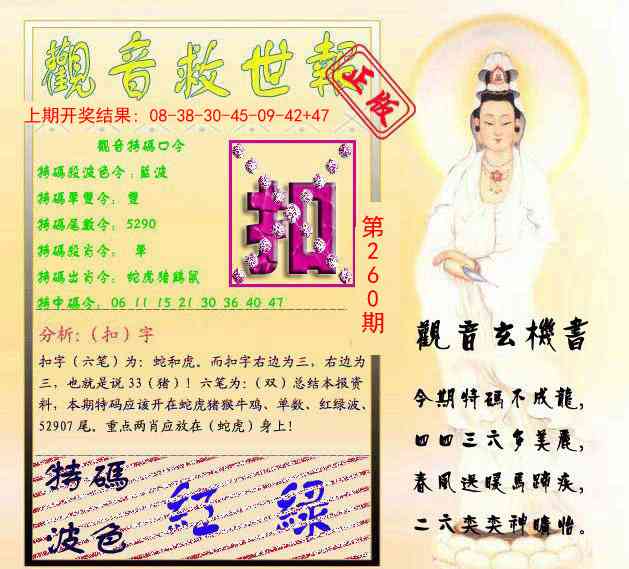 觀音救世報
正版
上期开奖结果：08-38-30-45-09-42+47
觀音特碼口令
特碼段波色令：藍波
特碼單雙令： 雙
特碼尾數令： 5290
特碼段肖令： 單
特碼出肖令： 蛇虎猪鷄鼠
特中碼令：06 11 15 21 30 36 40 47
扣
第260期
分析：（扣）字
扣字（六笔）为：蛇和虎。而扣字右边为三，右边为
三，也就是说 33（猪）！六笔为：（双）总结本报资
料，本期特码应该开在蛇虎猪猴牛鸡、单数、红绿波、
52907 尾。重点两肖应放在（蛇虎）身上！
特碼
波色
紅 綠
觀音玄機書
今期特碼不成龍，
四四三六多美麗，
春風送暖馬蹄疾，
二六奕奕神曠怡。